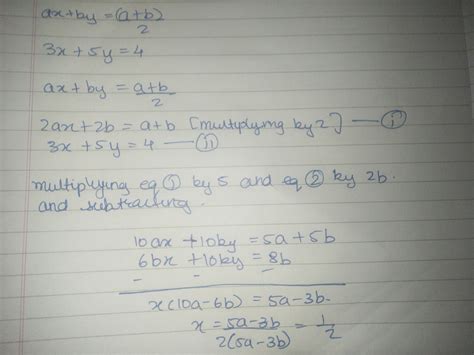 ax+by = (a+b)/2
3x + 5y = 4
ax + by = a+b/2
2ax + 2b = a+b [multiplying by 2] — (i)
3x + 5y = 4 — (ii)
multiplying eq (1) by 5 and eq (2) by 2b.
and subtracting.
10ax + 10by = 5a + 5b
6bx + 10by = 8b
- - -
x(10a-6b) = 5a-3b
x = 5a-3b/2(5a-3b) = 1/2